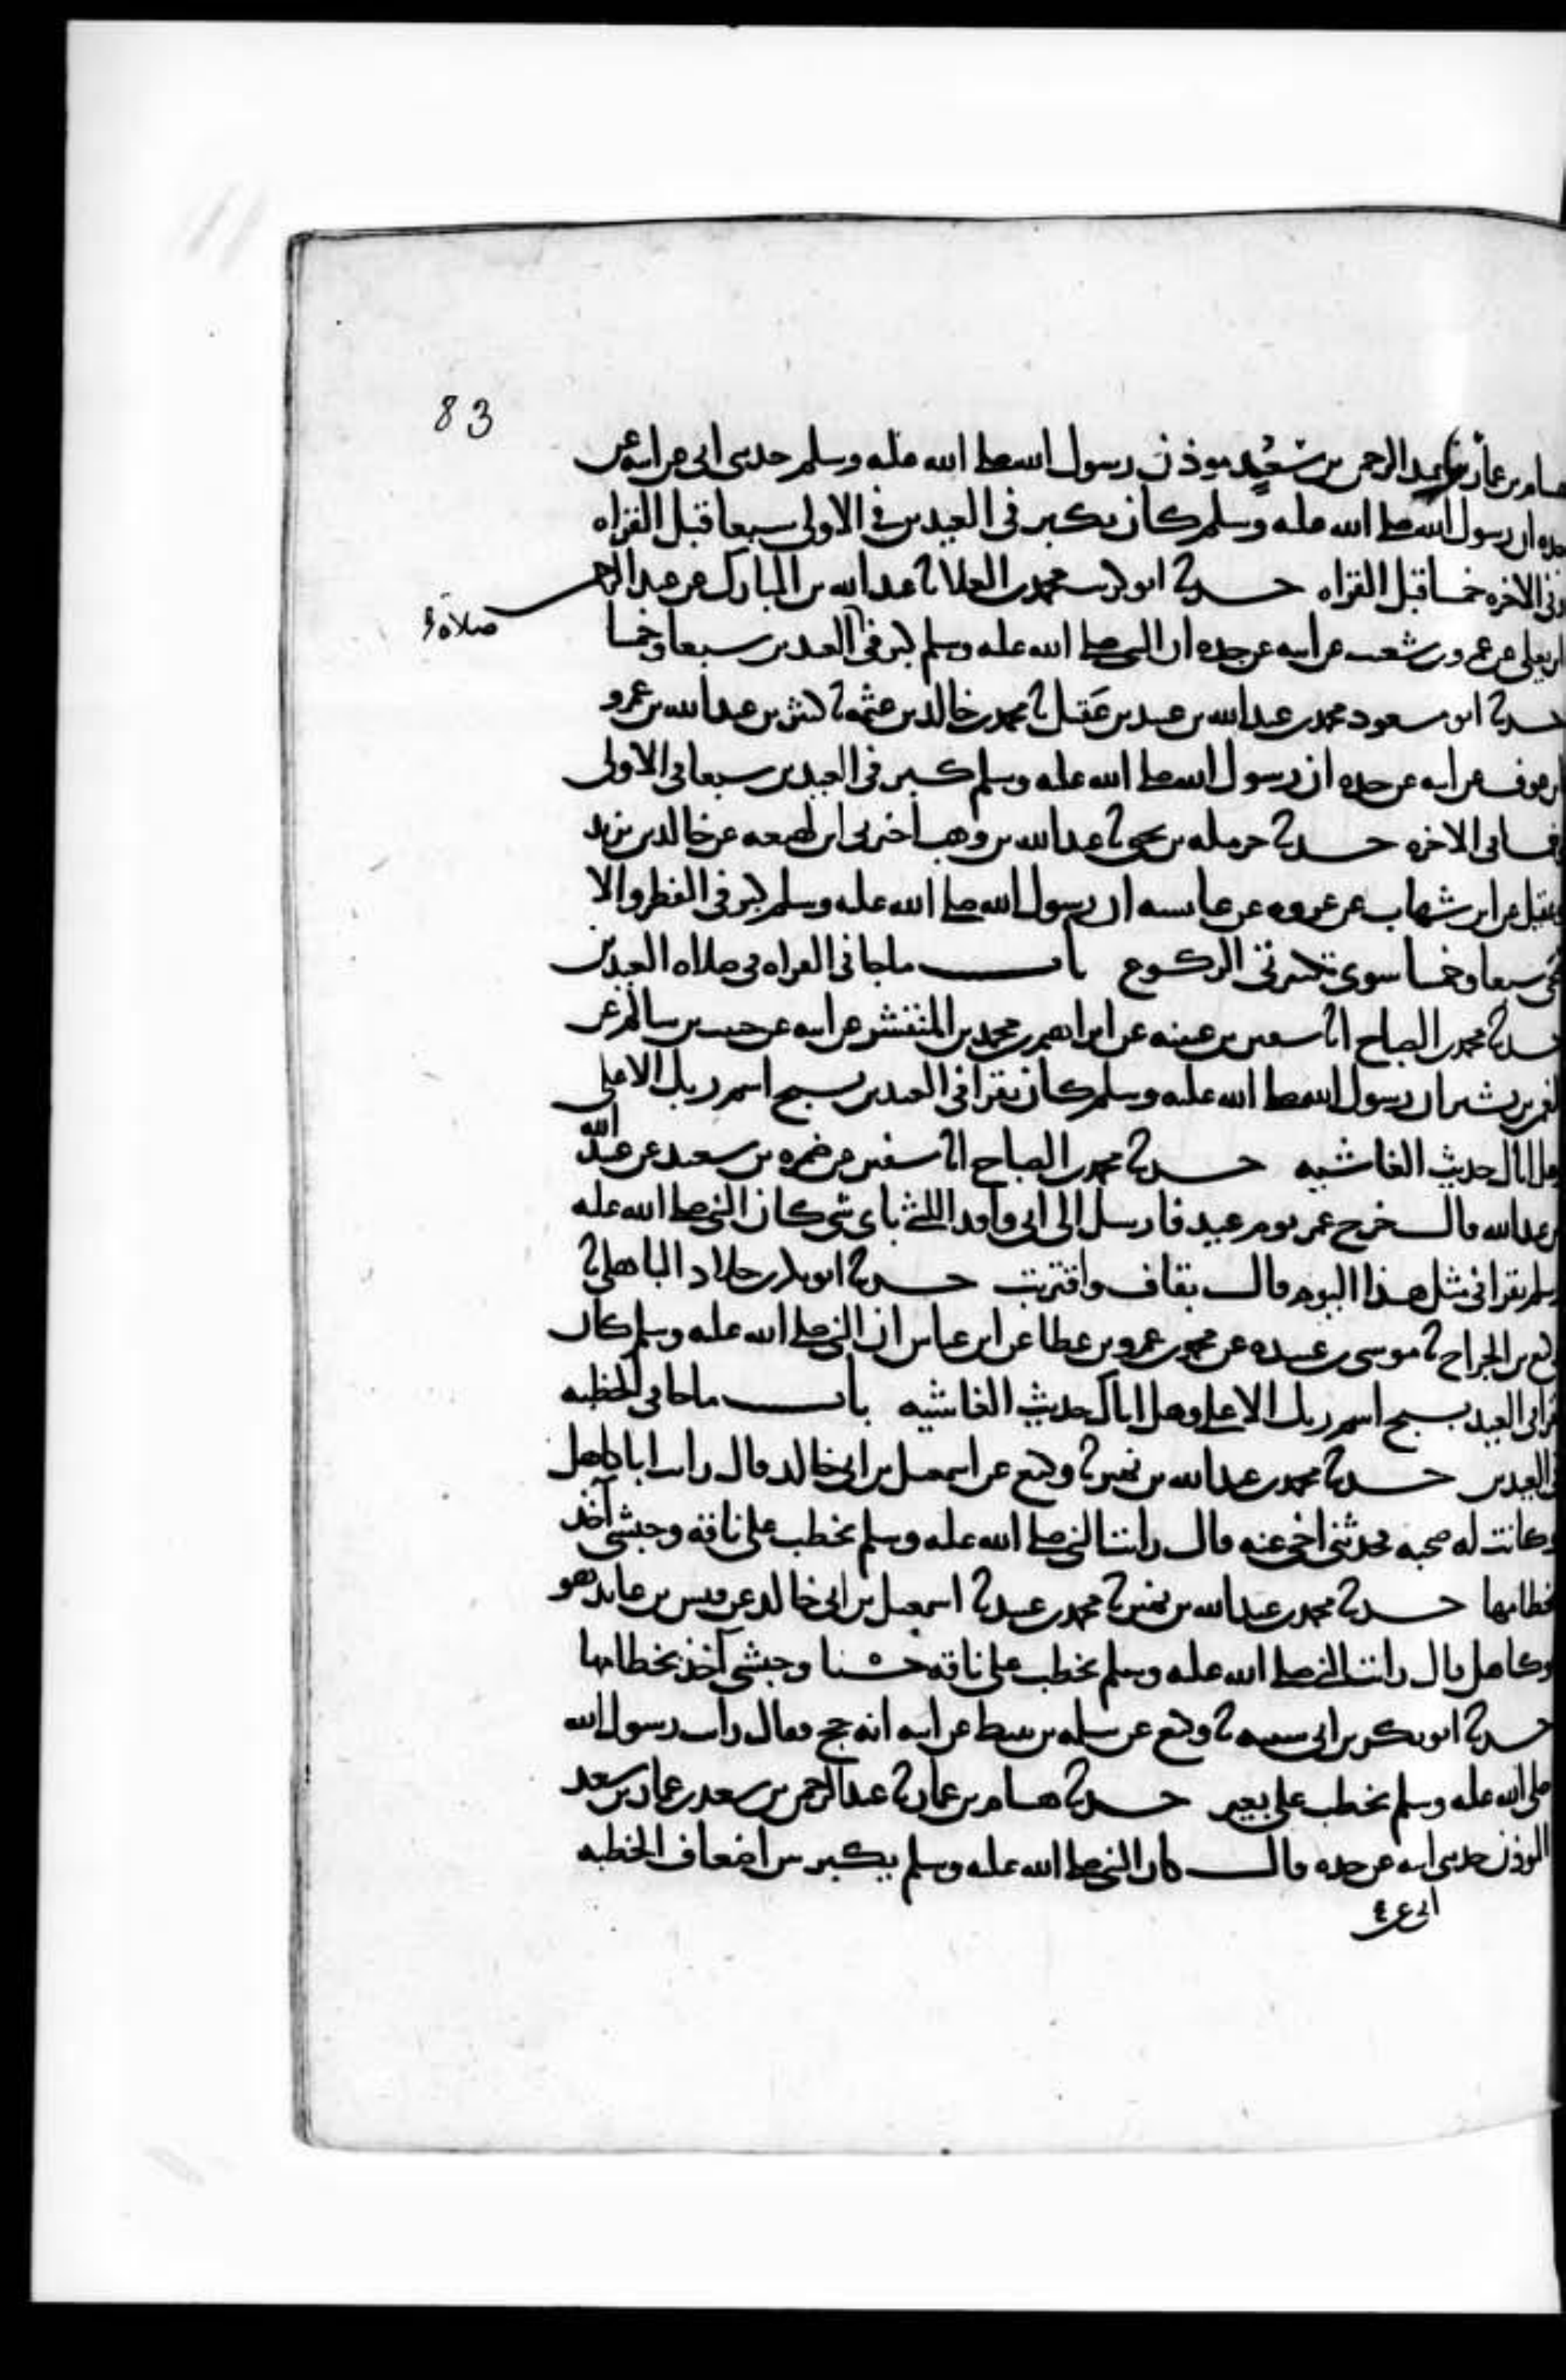 83
هسام بن عمار ثنا عبد الرحمن بن سعيد موذن رسول الله صلى الله عليه وسلم حدثني ابي عن ابيه عن
جده ان رسول الله صلى الله عليه وسلم كان يكبر في العيدين في الاولى سبعا قبل القراه
وفي الاخره خمسا قبل القراه حدثنا ابو كريب محمد بن العلا ثنا عبد الله بن المبارك عن عبد الرحمن
ابن يعلى عن عمرو بن شعيب عن ابيه عن جده ان النبي صلى الله عليه وسلم كبر في العيدين سبعا وخمسا
صلاة
حدثنا ابو مسعود محمد بن عبد الله بن عبيد بن عقيل ثنا محمد بن خالد بن عثمه ثنا كثير بن عبد الله بن عمرو
ابن عوف عن ابيه عن جده ان رسول الله صلى الله عليه وسلم كبر في العيدين سبعا في الاولى
وخمسا في الاخره حدثنا حرمله بن يحيى ثنا عبد الله بن وهب اخبرني ابن لهيعه عن خالد بن يزيد
وعقيل عن ابن شهاب عن عروه عن عايسه ان رسول الله صلى الله عليه وسلم كبر في الفطر والا
ضحى سبعا وخمسا سوى تكبيرتي الركوع باب ماجا في القراه في صلاه العيدين
حدثنا محمد بن الصباح انا سفين بن عيينه عن ابراهيم بن محمد بن المنتشر عن ابيه عن حبيب بن سالم عن
النعمن بن بشير ان رسول الله صلى الله عليه وسلم كان يقرا في العيدين بسبح اسم ربك الاعلى
وهل اتاك حديث الغاشيه حدثنا محمد بن الصباح انا سفين عن ضمره بن سعيد عن عبيد الله
بن عبد الله قال خرج عمر يوم عيد فارسل الى ابي واقد الليثي باي شي كان النبي صلى الله عليه
وسلم يقرا في مثل هذا اليوم قال بقاف واقتربت حدثنا ابو بكر بن خلاد الباهلي ثنا
وكيع بن الجراح ثنا موسى بن عبيده عن محمد بن عمرو بن عطا عن ابن عباس ان النبي صلى الله عليه وسلم كان
يقرا في العيد بسبح اسم ربك الاعلى وهل اتاك حديث الغاشيه باب ماجا في الخطبه
في العيدين حدثنا محمد بن عبد الله بن نمير ثنا وكيع عن اسمعيل بن ابي خالد قال رايت ابا كاهل
وكانت له صحبه فحدثني اخي عنه قال رايت النبي صلى الله عليه وسلم يخطب على ناقه وحبشي آخذ
بخطامها حدثنا محمد بن عبد الله بن نمير ثنا محمد بن عبيد ثنا اسمعيل بن ابي خالد عن قيس بن عايذ هو
ابو كاهل قال رايت النبي صلى الله عليه وسلم يخطب على ناقه حسنا وحبشي آخذ بخطامها
حدثنا ابو بكر بن ابي شيبه ثنا وكيع عن سلمه بن نبيط عن ابيه انه حج فقال رايت رسول الله
صلى الله عليه وسلم يخطب على بعير حدثنا هسام بن عمار ثنا عبد الرحمن بن سعد بن عمار بن سعد
الموذن حدثني ابي عن ابيه عن جده قال كان النبي صلى الله عليه وسلم يكبر بين اضعاف الخطبه